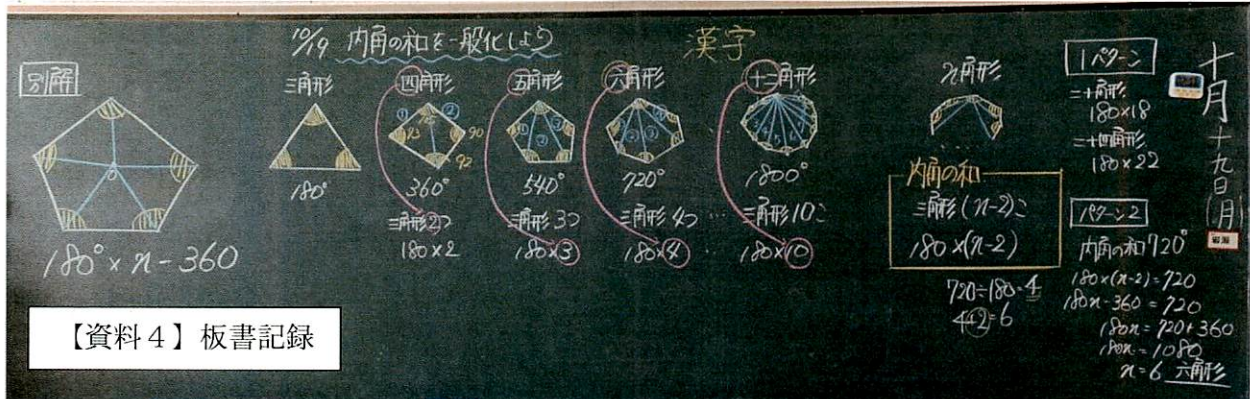 10/19 内角の和を一般化しよう
漢字
別解
180°×n-360
三角形
180°
四角形
① ②
93
90
92
360°
三角形2つ
180×2
五角形
① ② ③
540°
三角形3つ
180×3
六角形
720°
三角形4つ
180×4
…
十二角形
1800°
三角形10こ
180×10
n角形
‥‥
内角の和
三角形(n-2)こ
180×(n-2)
720÷180=4
4+2=6
1パターン
二十角形
180×18
二十四角形
180×22
パターン2
内角の和720°
180×(n-2)=720
180n-360=720
180n=720+360
180n=1080
n=6 六角形
十月十九日(月)
【資料4】板書記録